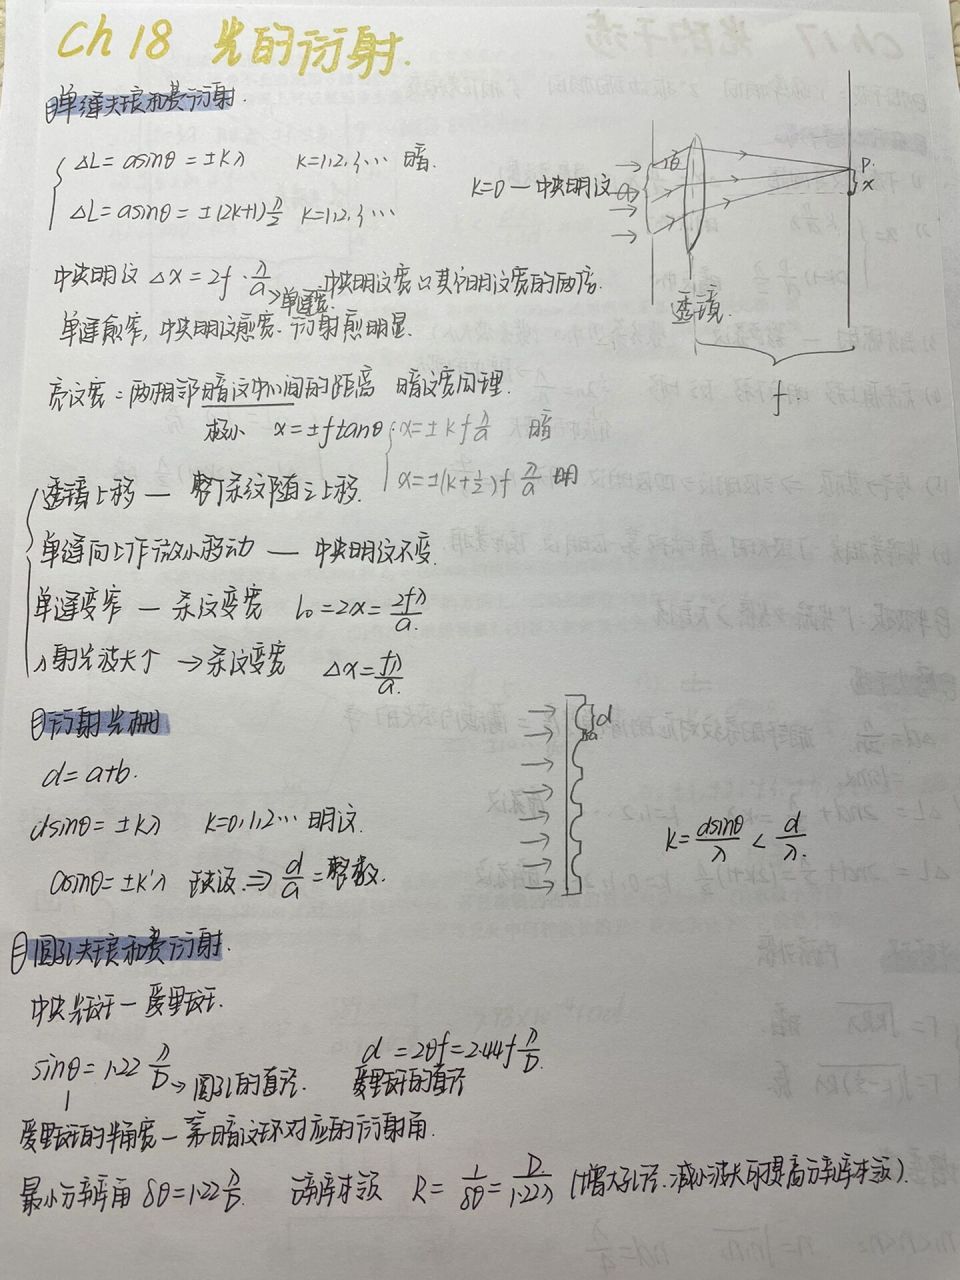 Ch 18 光的衍射.
单缝夫琅禾费衍射.
ΔL = a sinθ = ±kλ k=1,2,3… 暗
ΔL = a sinθ = ±(2k+1)λ/2 k=1,2,3…
k=0 — 中央明纹
a θ P. x
透镜.
f.
中央明纹 Δx = 2f·λ/a →单缝宽. 中央明纹宽is其他明纹宽的两倍.
单缝愈窄, 中央明纹愈宽. 衍射愈明显.
亮纹宽 = 两相邻暗纹中心间的距离 暗纹宽同理.
极小 x = ±f tanθ
x = ±k f λ/a 暗
x = ±(k+1/2) f λ/a 明
透镜上移 — 整个条纹随之上移.
单缝向上作微小移动 — 中央明纹不变.
单缝变窄 — 条纹变宽 l₀ = 2x = 2fλ/a.
入射光波长个 → 条纹变宽 Δx = fλ/a.
衍射光栅
d = a+b.
d a
d sinθ = ±kλ k=0,1,2… 明纹.
k = d sinθ/λ < d/λ.
a sinθ = ±k'λ 缺级 ⇒ d/a = 整数.
圆孔夫琅禾费衍射.
中央光斑 — 爱里斑.
sinθ = 1.22 λ/D → 圆孔的直径. d = 2θf = 2.44f λ/D.
爱里斑的直径
爱里斑的半角宽 — 第一暗纹环对应的衍射角.
最小分辨角 δθ = 1.22 λ/D. 分辨本领 R = 1/δθ = D/1.22λ (增大孔径. 减小波长可提高分辨本领).